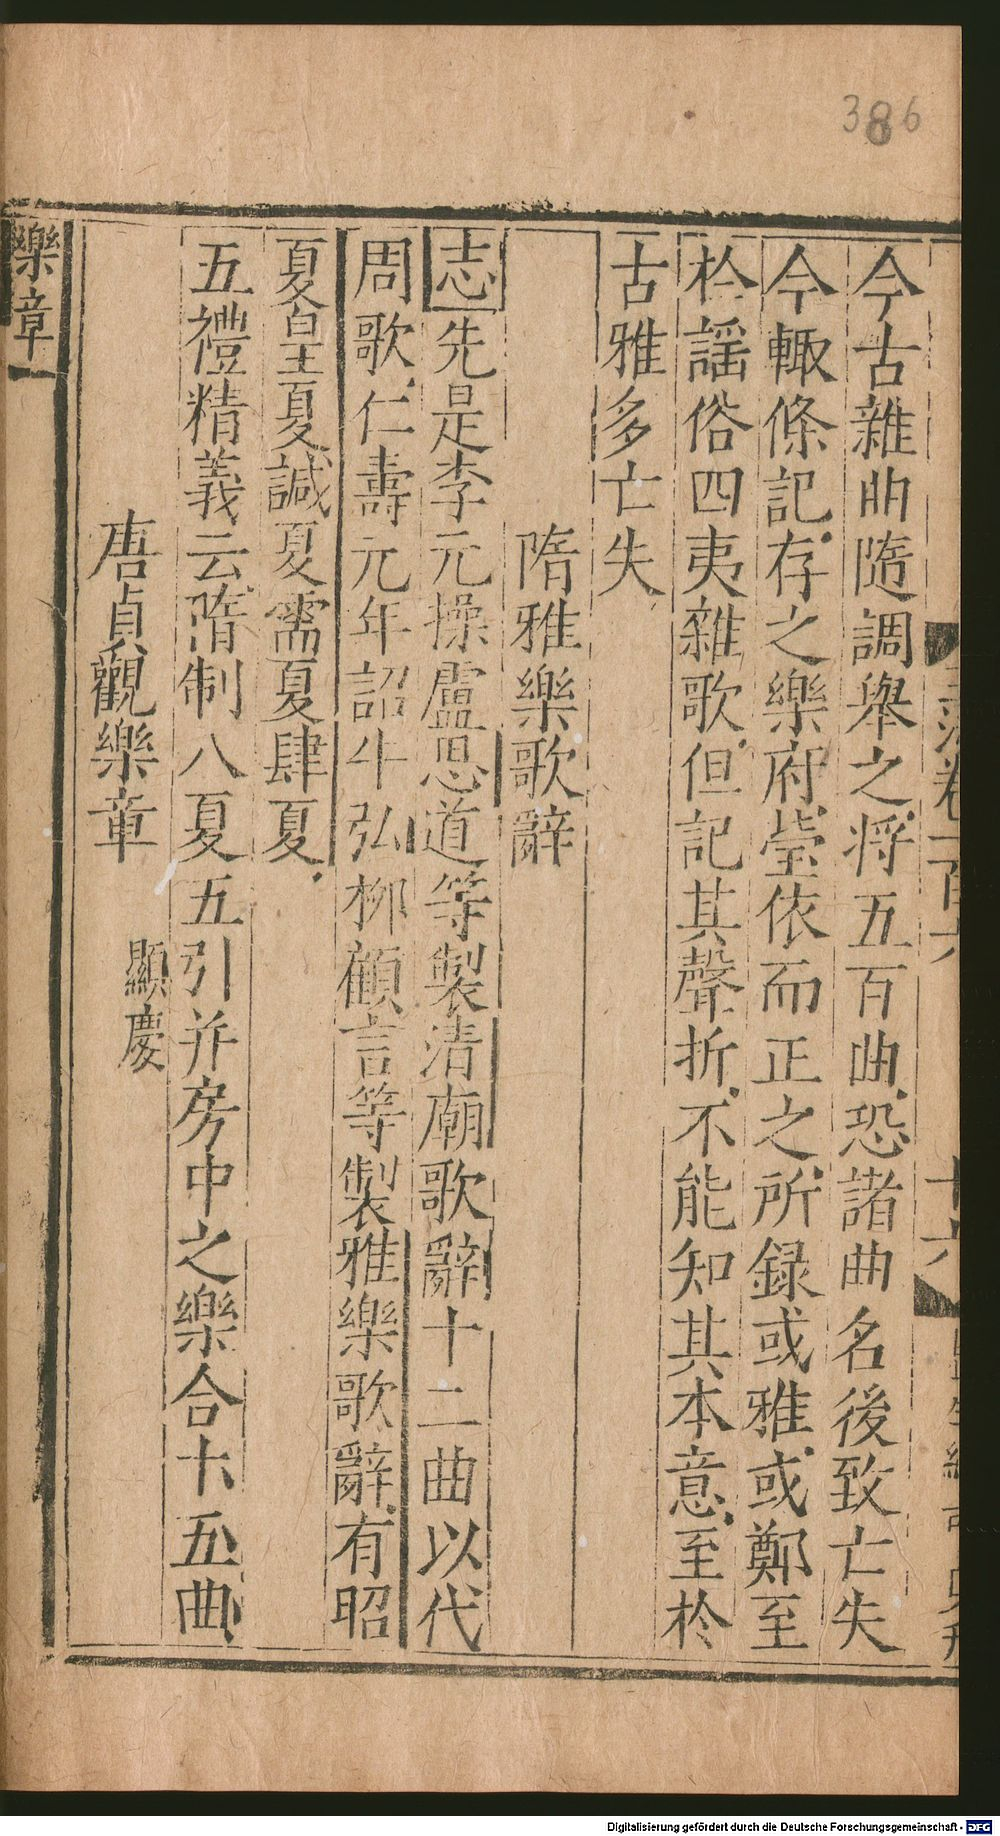 386
今古雜曲隨調舉之將五百曲恐諸曲名後致亡失
今輙條記存之樂府瑩依而正之所録或雅或鄭至
於謡俗四夷雜歌但記其聲折不能知其本意至於
古雅多亡失
隋雅樂歌辭
志先是李元操盧思道等製清廟歌辭十二曲以代
周歌仁壽元年詔牛弘柳顧言等製雅樂歌辭有昭
夏皇夏諴夏需夏肆夏
五禮精義云隋制八夏五引并房中之樂合十五曲
唐貞觀樂章 顯慶
樂章
Digitalisierung gefördert durch die Deutsche Forschungsgemeinschaft - DFG